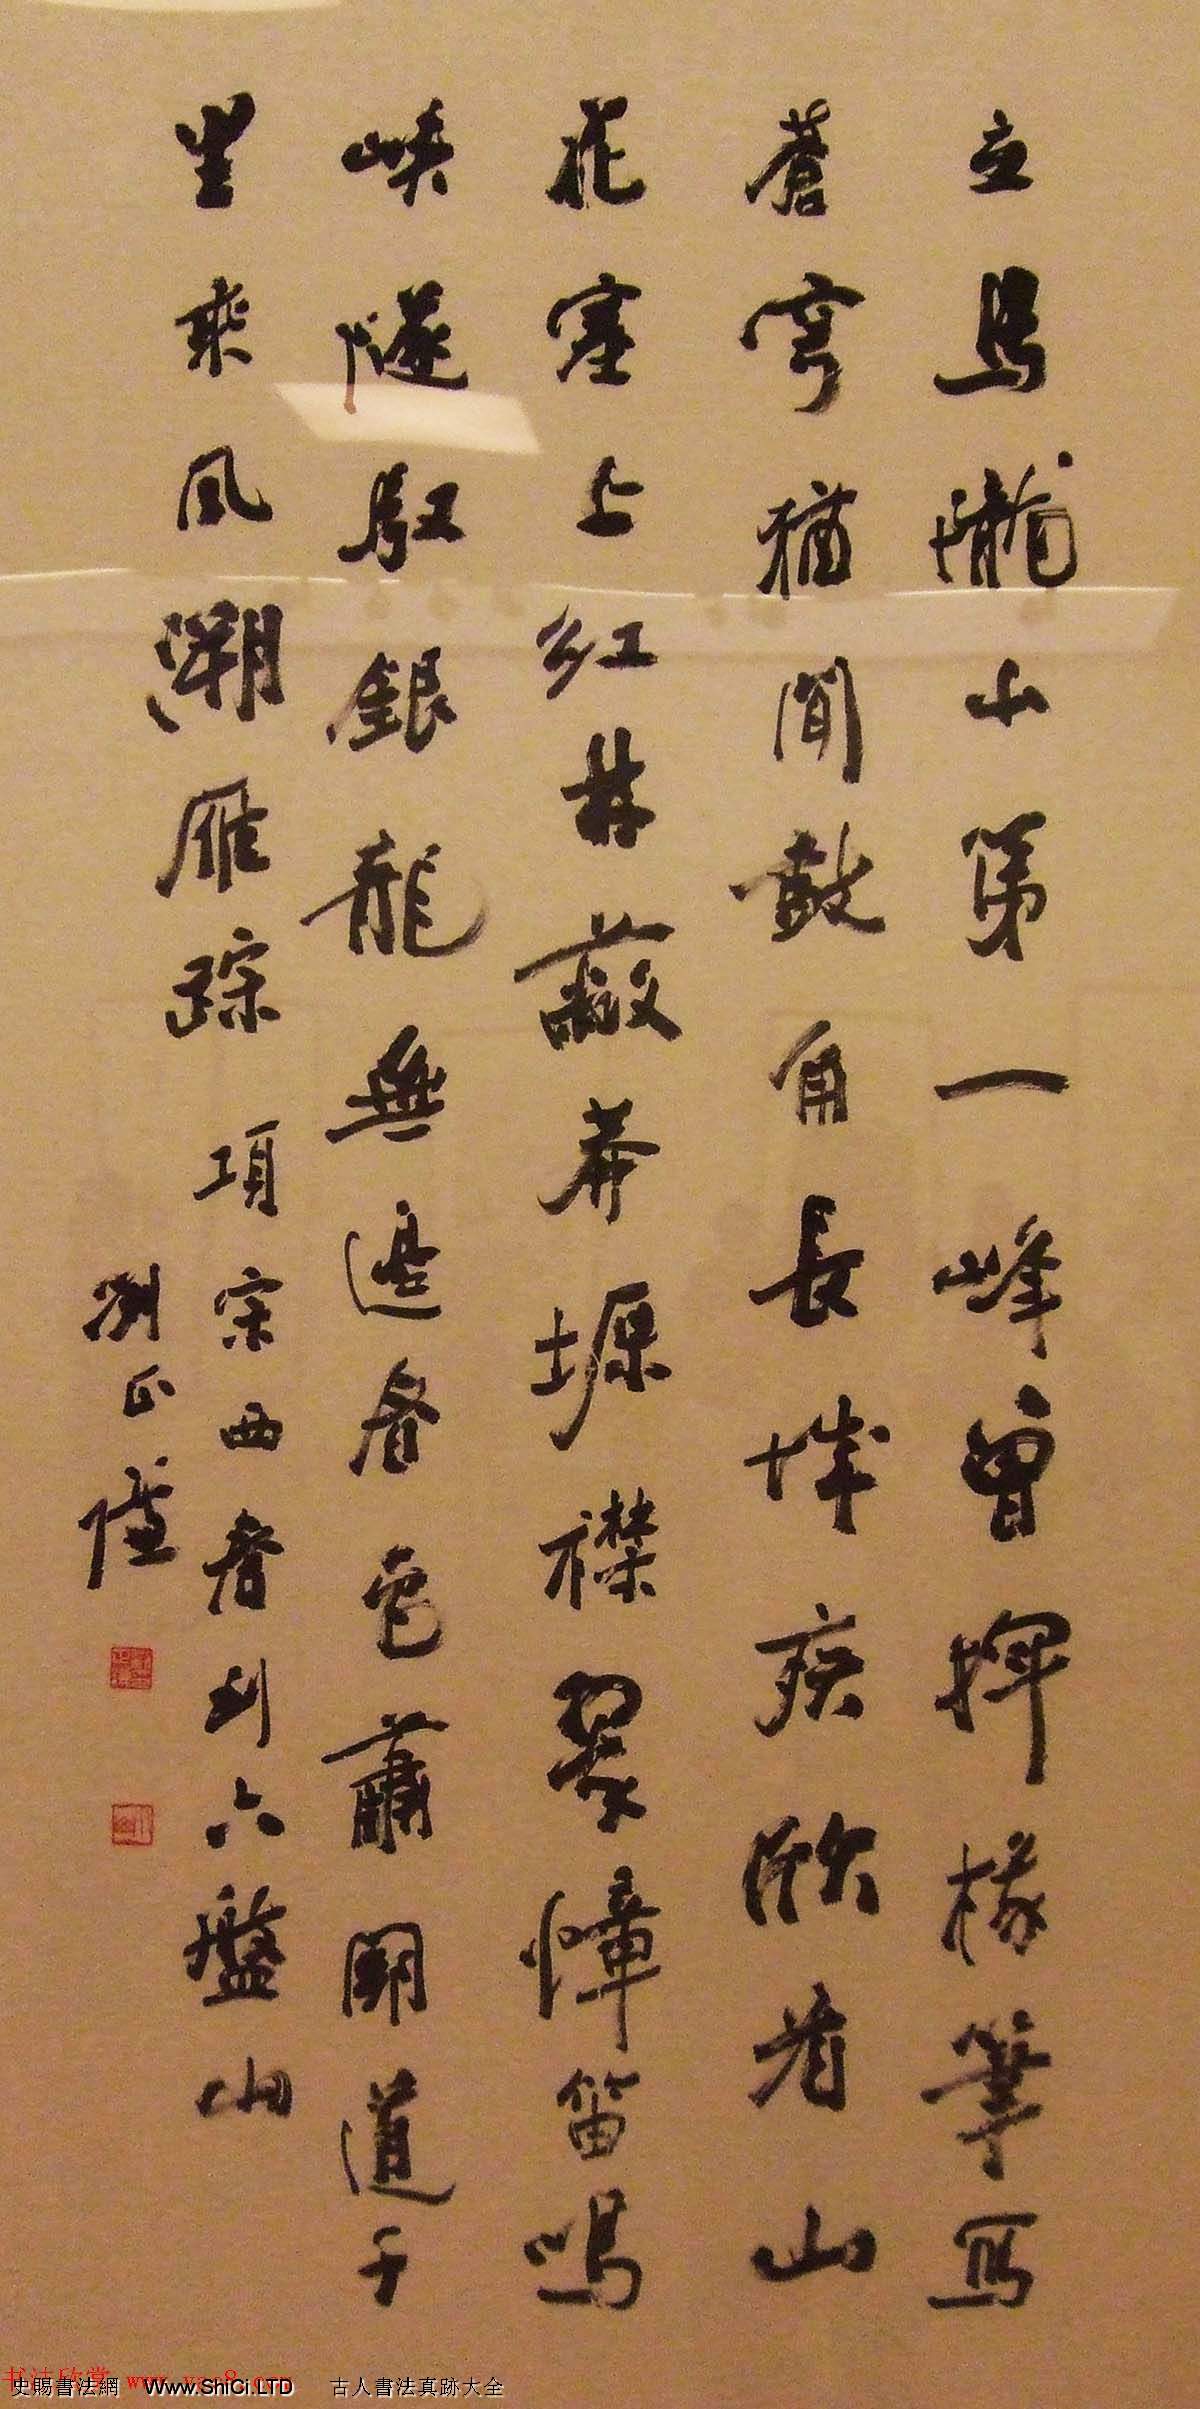 立馬隴山第一峰曾揮椽筆寫
蒼穹猶聞鼓角長城疾欣看山
花塞上紅林蔽莽塬襟翠幛笛鳴
峽隧馭銀龍無邊春色蕭關道千
里來風溯雁踪
項宗西春到六盤山
劉正謹
书法欣赏 www.yac8.com
史賜書法網 Www.ShiCi.LTD 古人書法真跡大全